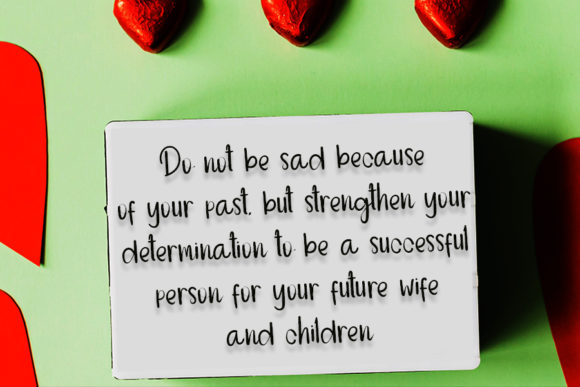 Do not be sad because
of your past, but strengthen your
determination to be a successful
person for your future wife
and children